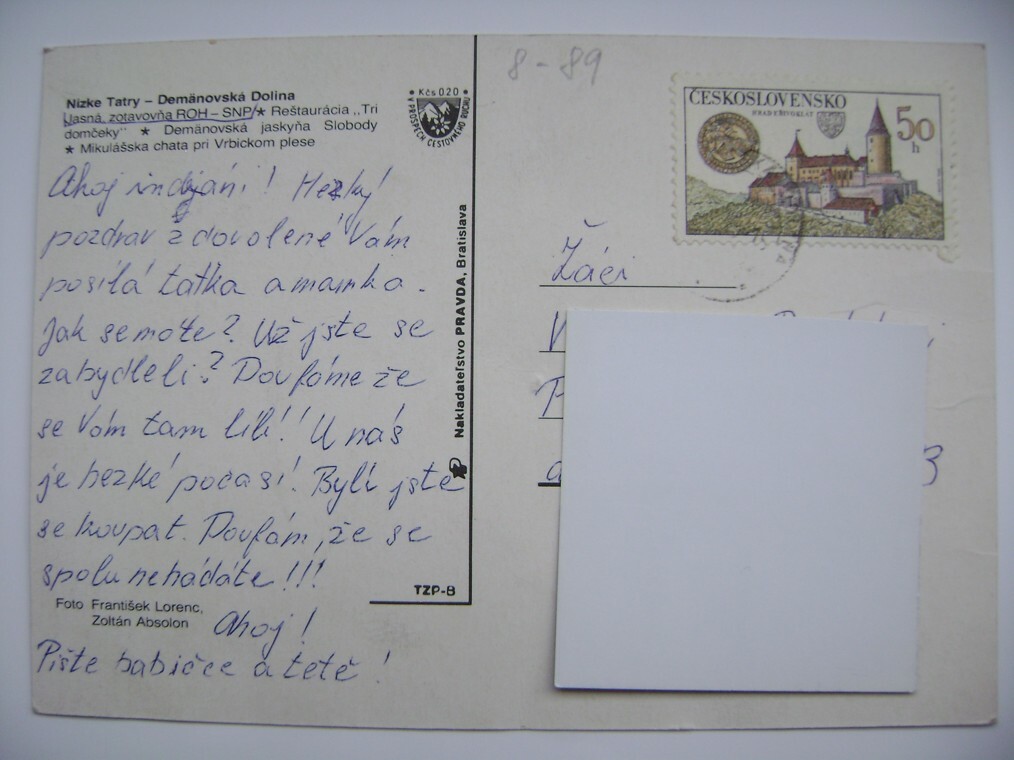 8-89
Nízke Tatry – Demänovská Dolina
Jasná, zotavovňa ROH – SNP ★ Reštaurácia „Tri
domčeky" ★ Demänovská jaskyňa Slobody
★ Mikulášska chata pri Vrbickom plese
Kčs 020
V PROSPECH CESTOVNÉHO RUCHU
ČESKOSLOVENSKO
HRAD KŘIVOKLÁT
50
h
Ahoj indyáni! Hezký
pozdrav z dovolené Vám
posílá taťka a mamka.
Jak se máte? Už jste se
zabydleli? Doufáme že
se Vám tam líbí! U nás
je hezké počasí! Byli jste
se koupat. Doufám, že se
spolu nehádáte!!!
Ahoj!
Pište babičce a tetě!
Foto František Lorenc,
Zoltán Absolon
Nakladateľstvo PRAVDA, Bratislava
TZP-B
Žáci
3